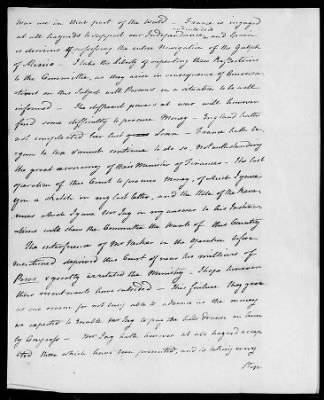 was me in that part of the World — France is engaged
at all hazards to support our Independance, and Spain
is desirous of possessing the entire Navigation of the Gulph
of Mexico — I take the liberty of repeating these Reflections
to the Committee, as they arise in consequence of Conversa
tions on this Subject with Persons in a situation to be well
informed — The different powers at war will however
find some difficulty to procure Money — England hath
not compleated her last Loan — France hath be
gun to tax & must continue to do so. Notwithstanding
the great œconomy of their Minister of Finances — The last
operation of this Court to procure Money, of which I gave
you a sketch in my last letter, and the State of the Reve
nues which I gave Mr Jay in my answer to his Instruc
tions will shew the Committee the Wants of this Country
The interference of Mr Necker in the Operation before
mentioned deprived this Court of near two millions of
Pesos & greatly irritated the Ministry — I hope however
their resentments have subsided — This failure they gave
as one reason for not being able to advance us the money
we expected to enable Mr Jay to pay the bills drawn on him
by Congress — Mr Jay hath however at all hazard accep
ted those which have been presented, and is taking every
Step